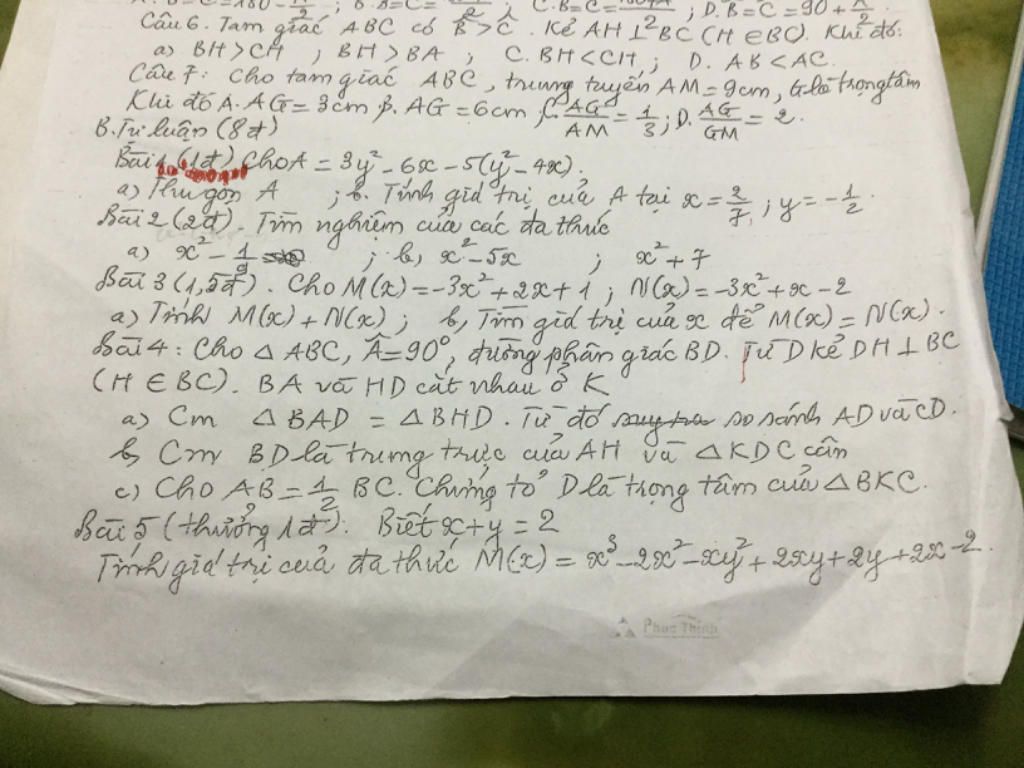 B=C= ; C.B=C= ; D.B=C=90+
Câu 6. Tam giác ABC có B̂ > Ĉ. Kẻ AH ⊥ BC (H ∈ BC). Khi đó:
a) BH>CH ; BH>BA ; C. BH<CH ; D. AB<AC.
Câu 7: Cho tam giác ABC, trung tuyến AM=9cm, G là trọng tâm
Khi đó A. AG=3cm β. AG=6cm ; C. AG/AM = 1/3 ; D. AG/GM = 2.
B. Tự luận (8đ)
Bài 1 (1đ) Cho A = 3y² - 6x - 5(y² - 4x).
a) Thu gọn A ; b. Tính giá trị của A tại x = 2/7 ; y = -1/2.
Bài 2 (2đ). Tìm nghiệm của các đa thức
a) x² - 1/9 ; b, x² - 5x ; x² + 7
Bài 3 (1,5đ). Cho M(x) = -3x² + 2x + 1 ; N(x) = -3x² + x - 2
a) Tính M(x) + N(x) ; b, Tìm giá trị của x để M(x) = N(x).
Bài 4 : Cho △ ABC, Â=90°, đường phân giác BD. Từ D kẻ DH ⊥ BC
(H ∈ BC). BA và HD cắt nhau ở K
a) Cm △ BAD = △ BHD. Từ đó suy ra so sánh AD và CD.
b, Cm BD là trung trực của AH và △ KDC cân
c) Cho AB = 1/2 BC. Chứng tỏ D là trọng tâm của △ BKC.
Bài 5 (thưởng 1đ): Biết x + y = 2
Tính giá trị của đa thức M(x) = x³ - 2x² - xy² + 2xy + 2y + 2x - 2.
Phuc Thinh